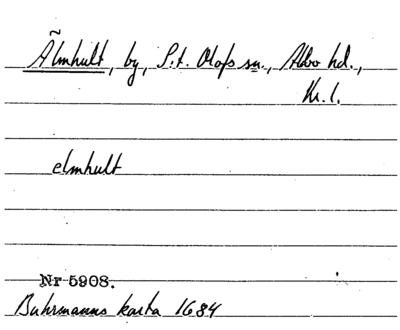 Älmhult, by, S:t. Olofs sn., Albo hd.,
Kr. l.
elmhult
Nr 5908.
Buhrmanns karta 1684